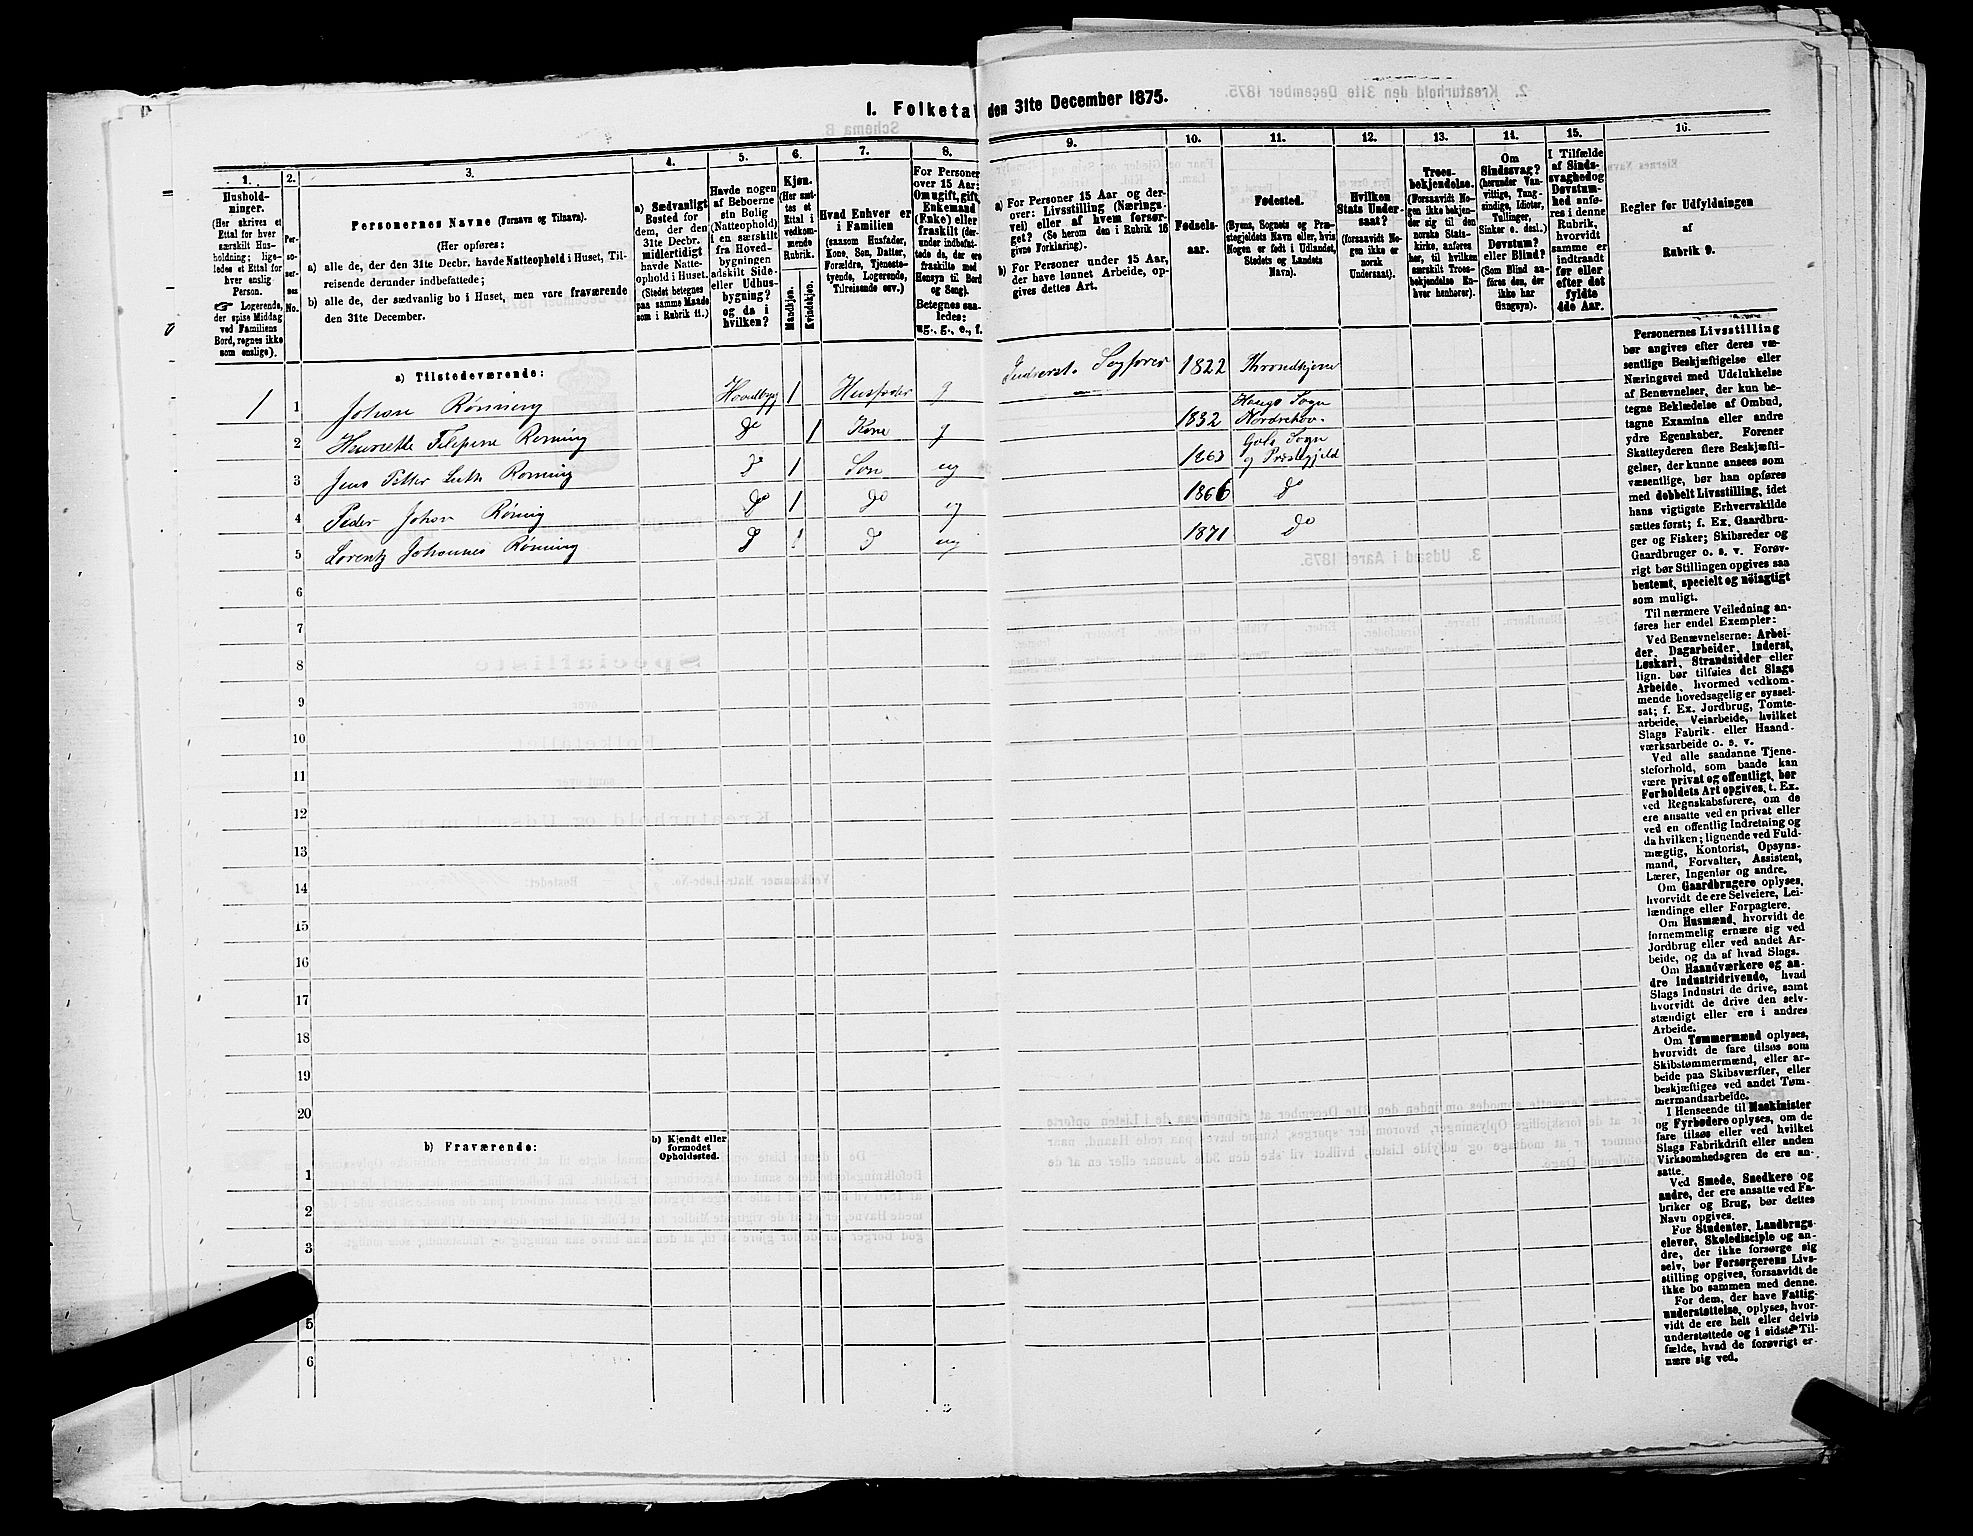 I. Folketæ
den 31te December 1875.
1.
2.
3.
4.
5.
6.
7.
8.
9.
10.
11.
12.
13.
14.
15.
16.
Hushold-
ninger.
(Her skrives et
Ettal for hver
særskilt Hus-
holdning; lige-
ledes et Ettal for
hver enslig
Person.
Logerende,
der spise Middag
ved Familiens
Bord, regnes ikke
som enslige).
Per-
soner-
nes
No.
Personernes Navne (Fornavn og Tilnavn).
(Her opføres:
a) alle de, der den 31te Decbr. havde Natteophold i Huset, Til-
reisende derunder indbefattede;
b) alle de, der sædvanlig bo i Huset, men vare fraværende
den 31te December.
a) Sædvanligt
Bosted for
dem, der den
31te Decbr.
midlertidigt
havde Natte-
ophold i Huset.
(Stedet betegnes
paa samme Maade
som i Rubrik 11.)
Havde nogen
af Beboerne
sin Bolig
(Natteophold)
i en særskilt
fra Hoved-
bygningen
adskilt Side-
eller Udhus-
bygning?
og da i
hvilken?
Kjøn.
(Her sæt-
tes et
Ettal i
vedkom-
mende
Rubrik.
Mandkjøn.
Kvindekjøn.
Hvad Enhver er
i Familien
(saasom Husfader,
Kone, Søn, Datter,
Forældre, Tjeneste-
tyende, Logerende,
Tilreisende osv.)
For Personer
over 15 Aar:
Om ugift, gift,
Enkemand
(Enke) eller
fraskilt (der-
under indbefat-
tede de, der
ere fraskilte med
Hensyn til Bord
og Seng).
Betegnes saa-
ledes:
ug., g., e., f.
a) For Personer 15 Aar og der-
over: Livsstilling (Nærings-
vei) eller af hvem forsør-
get? (Se herom den i Rubrik 16
givne Forklaring).
b) For Personer under 15 Aar,
der have lønnet Arbeide, op-
gives dettes Art.
Fødsels-
aar.
Fødested.
(Byens, Sognets og Præ-
stegjeldets Navn eller, hvis
Nogen er født i Udlandet,
Stedets og Landets
Navn).
Hvilken
Stats Under-
saat?
(forsaavidt No-
gen ikke er
norsk
Undersaat).
Troes-
bekjendelse.
(Forsaavidt No-
gen ikke bekjen-
der sig til den
norske Stats-
kirke, anføres
her, til hvilken
særskilt Troes-
bekjendelse En-
hver henhører).
Om
Sindssvag?
(herunder Van-
vittige, Tung-
sindige, Idioter,
Tullinger,
Sinker o. desl.)
Døvstum?
eller Blind?
(Som Blind an-
føres den, der
ikke har
Gangsyn).
I Tilfælde
af Sinds-
svaghed og
Døvstum-
hed anfø-
res i denne
Rubrik,
hvorvidt
samme er
indtraadt
før eller
efter det
fyldte
4de Aar.
Regler for Udfyldningen
af
Rubrik 9.
a) Tilstedeværende:
1 1 Johan Rønning Hovedbyg 1 Husfader g Sagfører 1822 Throndhjem
2 Henriette Filepine Rønning Do 1 Kone g 1832 Haugs Sogn Nordrehov
3 Jens Petter Rønning Do 1 Søn ug 1863 Gols Sogn og Præstegjeld
4 Peder Johan Rønning Do 1 Do ug 1866 Do
5 Lorentz Johannes Rønning D 1 D ug 1871 Do
6
7
8
9
10
11
12
13
14
15
16
17
18
19
20
b) Fraværende:
b) Kjendt eller
formodet
Opholdssted.
1
2
3
5
6
Personernes Livsstilling
bør angives efter deres væ-
sentlige Beskjæftigelse eller
Næringsvei med Udelukkelse
af Benævnelser, der kun be-
tegne Beklædelse af Ombud,
tagne Examina eller andre
ydre Egenskaber. Forener
Skatteyderen flere Beskjæfti-
gelser, der kunne ansees som
væsentlige, bør han opføres
med dobbelt Livsstilling, idet
hans vigtigste Erhvervskilde
sættes først; f. Ex. Gaardbru-
ger og Fisker; Skibsreder og
Gaardbruger o. s. v. Forøv-
rigt bør Stillingen opgives saa
bestemt, specielt og nøiagtigt
som muligt.
Til nærmere Veiledning an-
føres her endel Exempler:
Ved Benævnelserne: Arbei-
der, Dagarbeider, Inderst,
Løskarl, Strandsidder eller
lign. bør tilføies det Slags
Arbeide, hvormed vedkom-
mende hovedsagelig er syssel-
sat; f. Ex. Jordbrug, Tomte-
arbeide, Veiarbeide, hvilket
Slags Fabrik- eller Haand-
værksarbeide o. s. v.
Ved alle saadanne Tjene-
steforhold, som baade kan
være privat og offentligt, bør
Forholdets Art opgives, t. Ex.
ved Regnskabsførere, om de
ere ansatte ved en privat eller
ved en offentlig Indretning og
da hvilken; lignende ved Fuld-
mægtig, Kontorist, Opsyns-
mand, Forvalter, Assistent,
Lærer, Ingeniør og andre.
Om Gaardbrugere oplyses,
hvorvidt de ere Selveiere, Lei-
lændinge eller Forpagtere.
Om Husmænd, hvorvidt de
fornemmelig ernære sig ved
Jordbrug eller ved andet Ar-
beide, og da af hvad Slags.
Om Haandværkere og an-
dre Industridrivende, hvad
Slags Industri de drive, samt
hvorvidt de drive den selv-
stændigt eller ere i andres
Arbeide.
Om Tømmermænd oplyses,
hvorvidt de fare tilsøs som
Skibstømmermænd, eller ar-
beide paa Skibsværfter, eller
beskjæftiges ved andet Tøm-
mermandsarbeide.
I Henseende til Maskinister
og Fyrbødere oplyses, om de
fare tilsøs eller ved hvilket
Slags Fabrikdrift eller anden
Virksomhedsgren de ere an-
satte.
Ved Smede, Snedkere og
andre, der ere ansatte ved Fa-
briker og Brug, bør dettes
Navn opgives.
For Studenter, Landbrugs-
elever, Skoledisciple og an-
dre, der ikke forsørge sig
selv, bør Forsørgerens Livs-
stilling opgives, forsaavidt de
ikke bo sammen med denne.
For dem, der have Fattig-
understøttelse, oplyses, hvor-
vidt de ere helt eller delvis
understøttede og i sidste Til-
fælde, hvad de forøvrigt er-
nære sig ved.